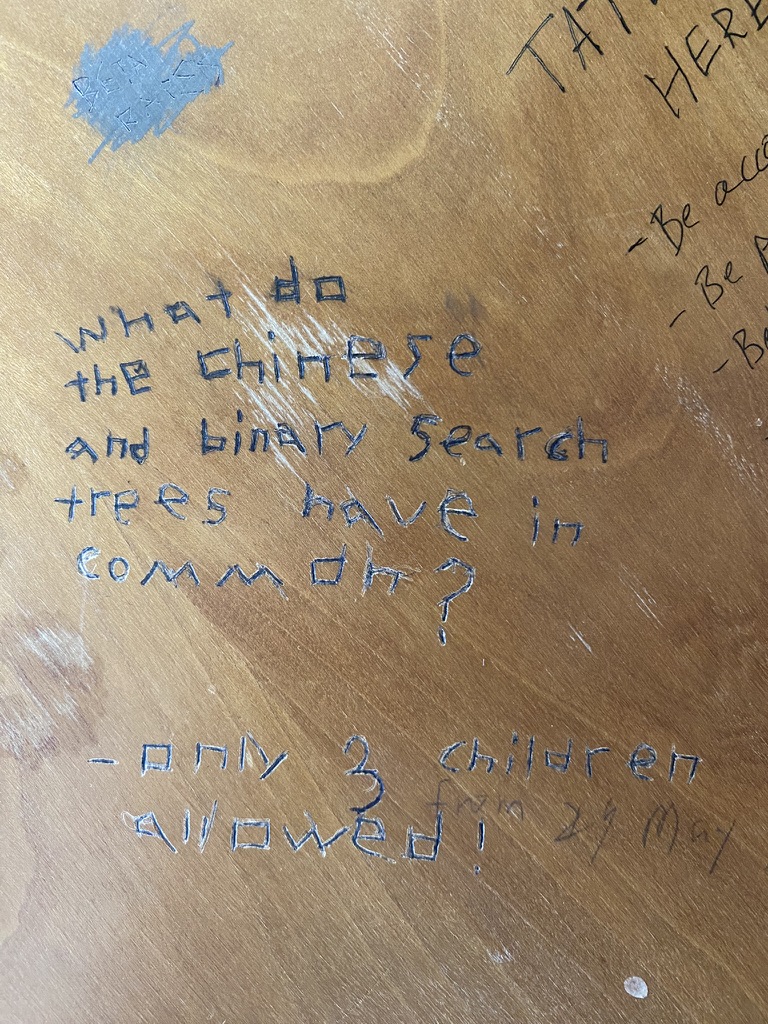 TAT
HERE
- Be acco
- Be
- Be
What do
the chinese
and binary search
trees have in
common?
- only 3 children
allowed!
from 24 May